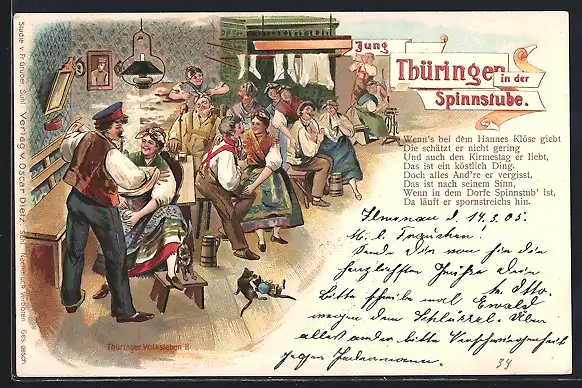 Jung
Thüringen
in der
Spinnstube.
Wenn's bei dem Hannes Klöse giebt
Die schätzt er nicht gering
Und auch den Kirmestag er liebt,
Das ist ein köstlich Ding.
Doch alles And're er vergisst,
Das ist nach seinem Sinn,
Wenn in dem Dorfe Spinnstub' ist,
Da läuft er spornstreichs hin.
Ilmenau d. 14.3.05.
M. l.
Sende Dir von hier die
herzlichsten Grüße Dein
Otto.
Bitte schreibe mal Ewald
wegen dem Schlüssel. Über
alles andere bitte Verschwiegenheit
gegen Jedermann.
34
Thüringer Volksleben II
Verlag v. Oscar Dierz, Suhl. Nachdruck verboten. Ges. gesch.